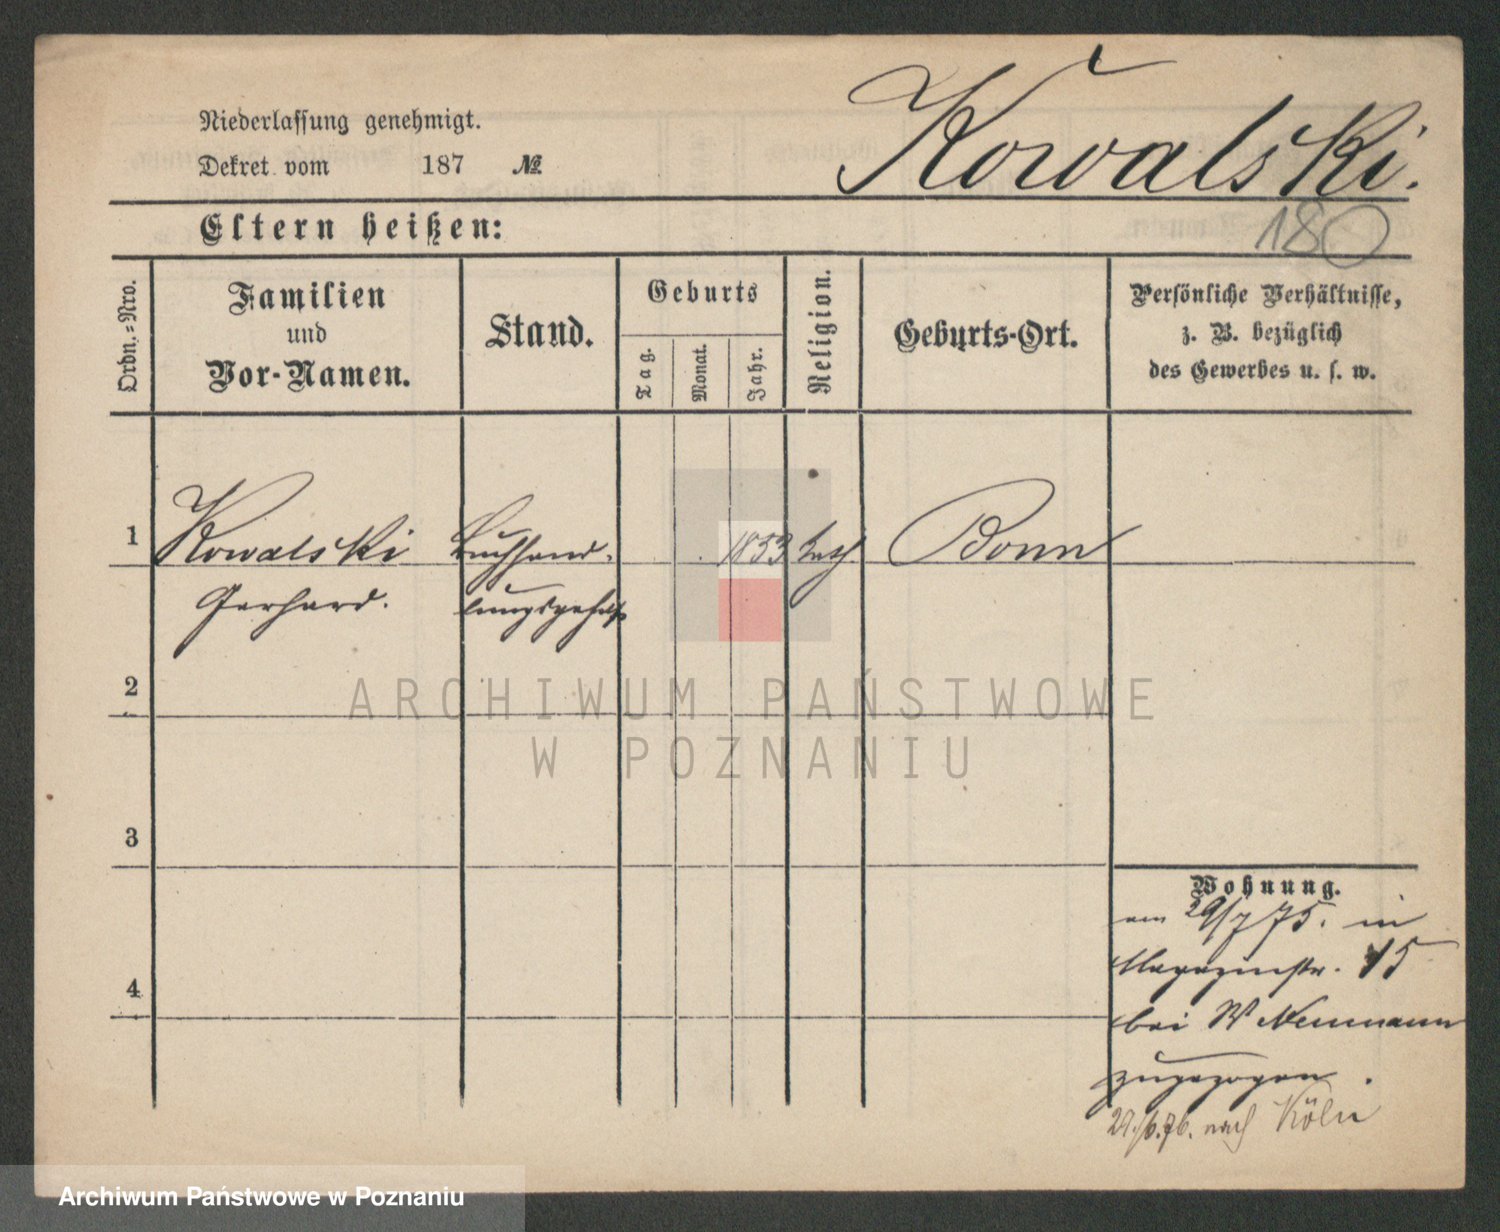 Niederlassung genehmigt.
Dekret vom 187 №
Kowalski.
180
Eltern heißen:
Ordn.=Nro.
Familien
und
Vor-Namen.
Stand.
Geburts
Tag.
Monat.
Jahr.
Religion.
Geburts-Ort.
Persönliche Verhältnisse,
z. B. bezüglich
des Gewerbes u. s. w.
1 Kowalski Buchhand- 1853 kath. Bonn
Gerhard. lungsgehilfe
2
3
4
Wohnung.
am 29/7 75. in
Magazinstr. 15
bei W Neumann
zugezogen.
29./6.76. nach Köln
ARCHIWUM PAŃSTWOWE
W POZNANIU
Archiwum Państwowe w Poznaniu